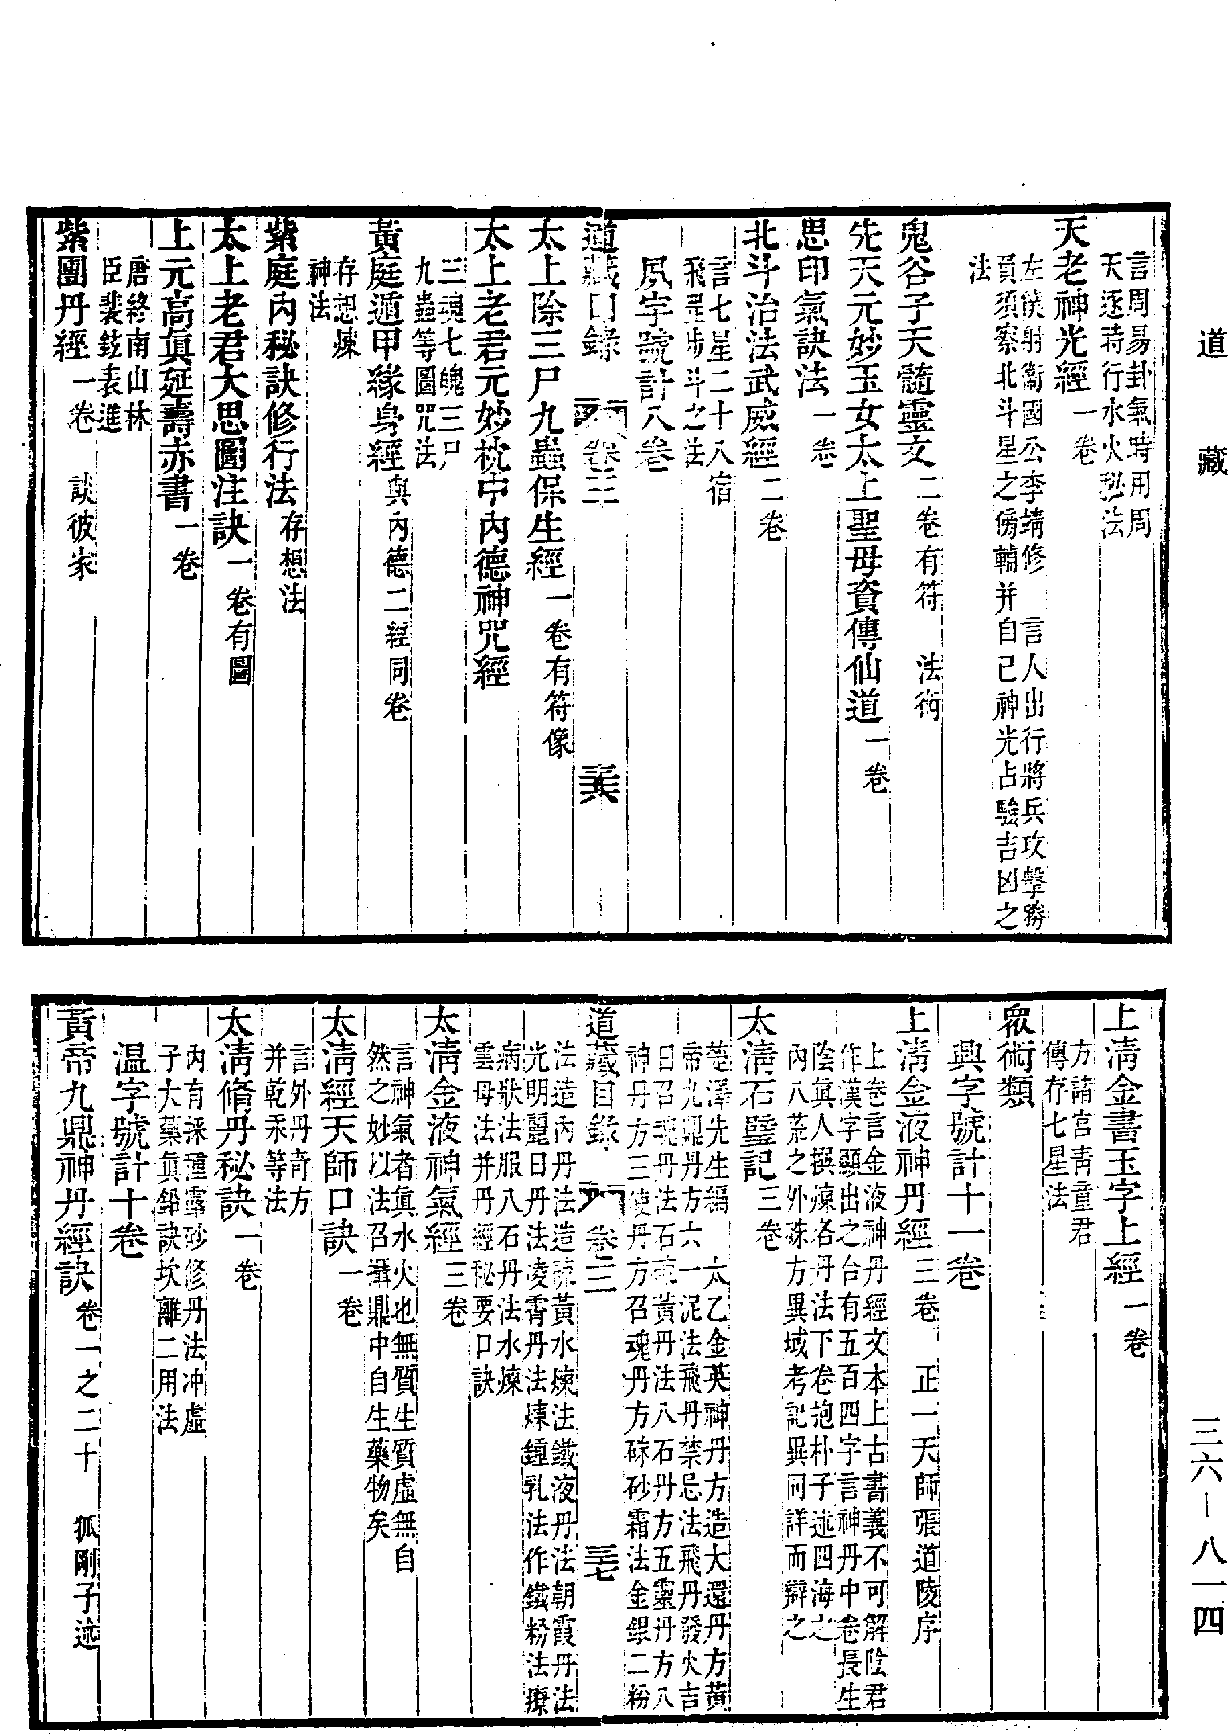 道藏
言周易卦氣時用周
天逐時行水火秘法
天老神光經一卷
左僕射衞國公李靖修　言人出行將兵攻擊勝
頁須察北斗星之傍輔并自己神光占驗吉凶之
法
鬼谷子天髓靈文二卷有符　法術
先天元妙玉女太上聖母資傳仙道一卷
思印氣訣法一卷
北斗治法武威經二卷
言七星二十八宿
飛罡步斗之法
夙字號計八卷
道藏目錄　卷三　三六
太上除三尸九蟲保生經一卷有符像
太上老君元妙枕中內德神咒經
三魂七魄三尸
九蟲等圖咒法
黃庭遁甲緣身經與內德二經同卷
存想煉
神法
紫庭內秘訣修行法存想法
太上老君大思圖注訣一卷有圖
上元高眞延壽赤書一卷
唐終南山林
臣裴鉉表進
紫團丹經一卷　談彼家
上淸金書玉字上經一卷
方諸宮青童君
傳存七星法
衆術類
興字號計十一卷
上淸金液神丹經三卷　正一天師張道陵序
上卷言金液神丹經文本上古書義不可解陰君
作漢字顯出之台有五百四字言神丹中卷長生
陰眞人撰煉各丹法下卷抱朴子述四海之
內八荒之外殊方異域考記異同詳而辯之
太淸石壁記三卷
楚澤先生編　太乙金英神丹方造大還丹方黃
帝九鼎丹方六一泥法飛丹禁忌法飛丹發火吉
日召魂丹法石硫黃丹法八石丹方五靈丹方八
神丹方三使丹方召魂丹方硃砂霜法金銀二粉
道藏目錄　卷三　三七
法造內丹法造硫黃水煉法鐵液丹法朝霞丹法
光明麗日丹法凌霄丹法煉鍾乳法作鐵粉法療
病狀法服八石丹法水煉
雲母法并丹經秘要口訣
太淸金液神氣經三卷
言神氣者眞水火也無質生質虛無自
然之妙以法召攝鼎中自生藥物矣
太淸經天師口訣一卷
言外丹青方
并乾汞等法
太淸修丹秘訣一卷
內有採種靈砂修丹法冲虛
子大藥眞鉛訣坎離二用法
温字號計十卷
黃帝九鼎神丹經訣卷一之二十　狐剛子述
三六—八一四